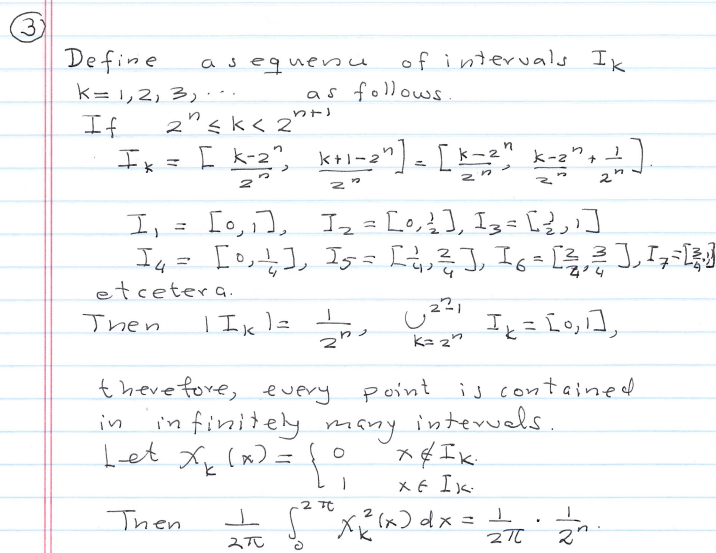 ③
Define a sequence of intervals I_k
k = 1, 2, 3, ... as follows.
If 2^n ≤ k < 2^{n+1}
I_k = [ (k-2^n)/2^n, (k+1-2^n)/2^n ] = [ (k-2^n)/2^n, (k-2^n)/2^n + 1/2^n ].
I_1 = [0,1], I_2 = [0,1/2], I_3 = [1/2,1]
I_4 = [0,1/4], I_5 = [1/4,2/4], I_6 = [2/4,3/4], I_7 = [3/4,1]
etcetera.
Then |I_k| = 1/2^n, ∪_{k=2^n}^{2^{n}-1} I_k = [0,1],
therefore, every point is contained
in infinitely many intervals.
Let χ_k(x) = { 0 x ∉ I_k.
1 x ∈ I_k.
Then 1/2π ∫_0^{2π} χ_k^2(x) dx = 1/2π · 1/2^n.